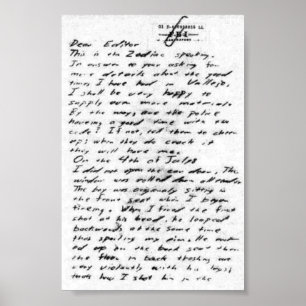 Dear Editor
This is the Zodiac speaking.
In answer to your asking for
more details about the good
times I have had in Vallejo,
I shall be very happy to
supply even more material.
By the way, are the police
haveing a good time with the
code? If not, tell them to cheer
up; when they do crack it
they will have me.
On the 4th of July
I did not open the car door. The
window was rolled down all ready.
The boy was origionaly sitting in
the front seat when I began
fireing. When I fired the first
shot at his head, he leaped
backwards at the same time
thus spoiling my aim. He ended
up on the back seat then
the floor in back thrashing out
very violently with his legs;
thats how I shot him in the